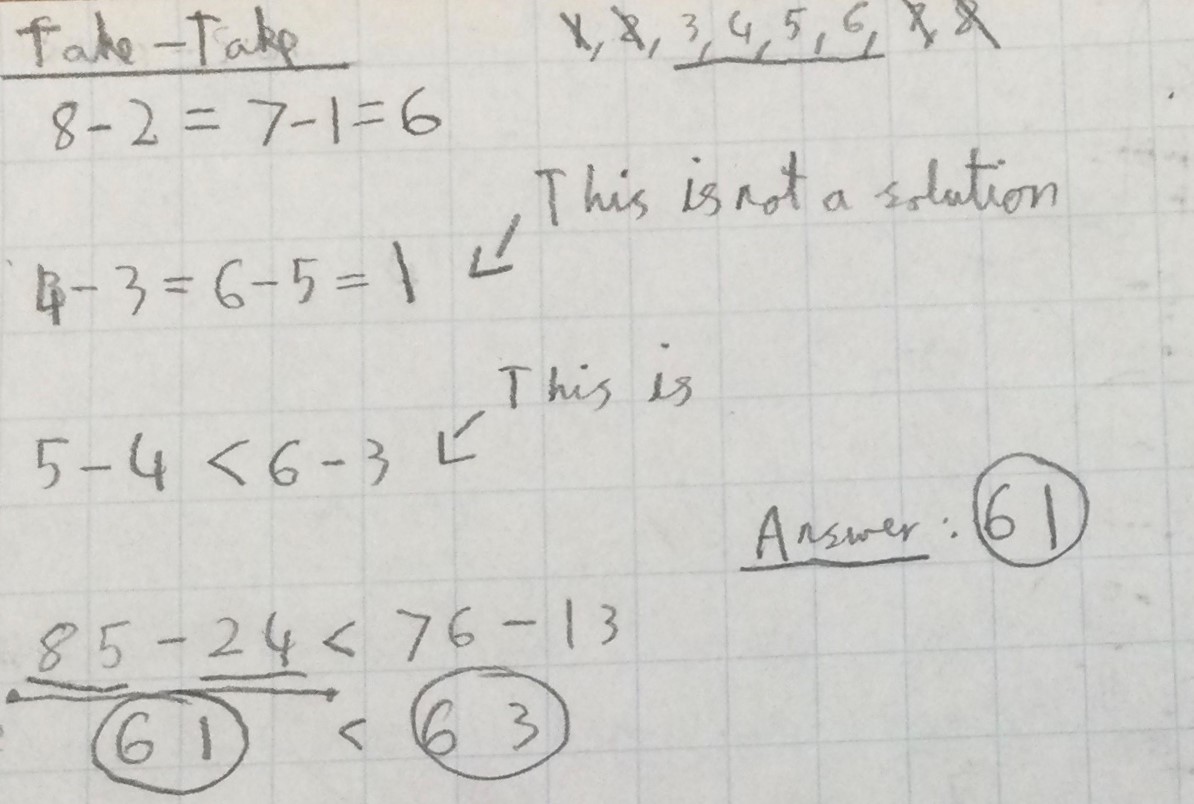 Take-Take
1, 2, 3, 4, 5, 6, 7, 8
8-2 = 7-1=6
This is not a solution
4-3 = 6-5 = 1
This is
5-4 < 6-3
Answer: 61
85-24 < 76-13
61 < 63